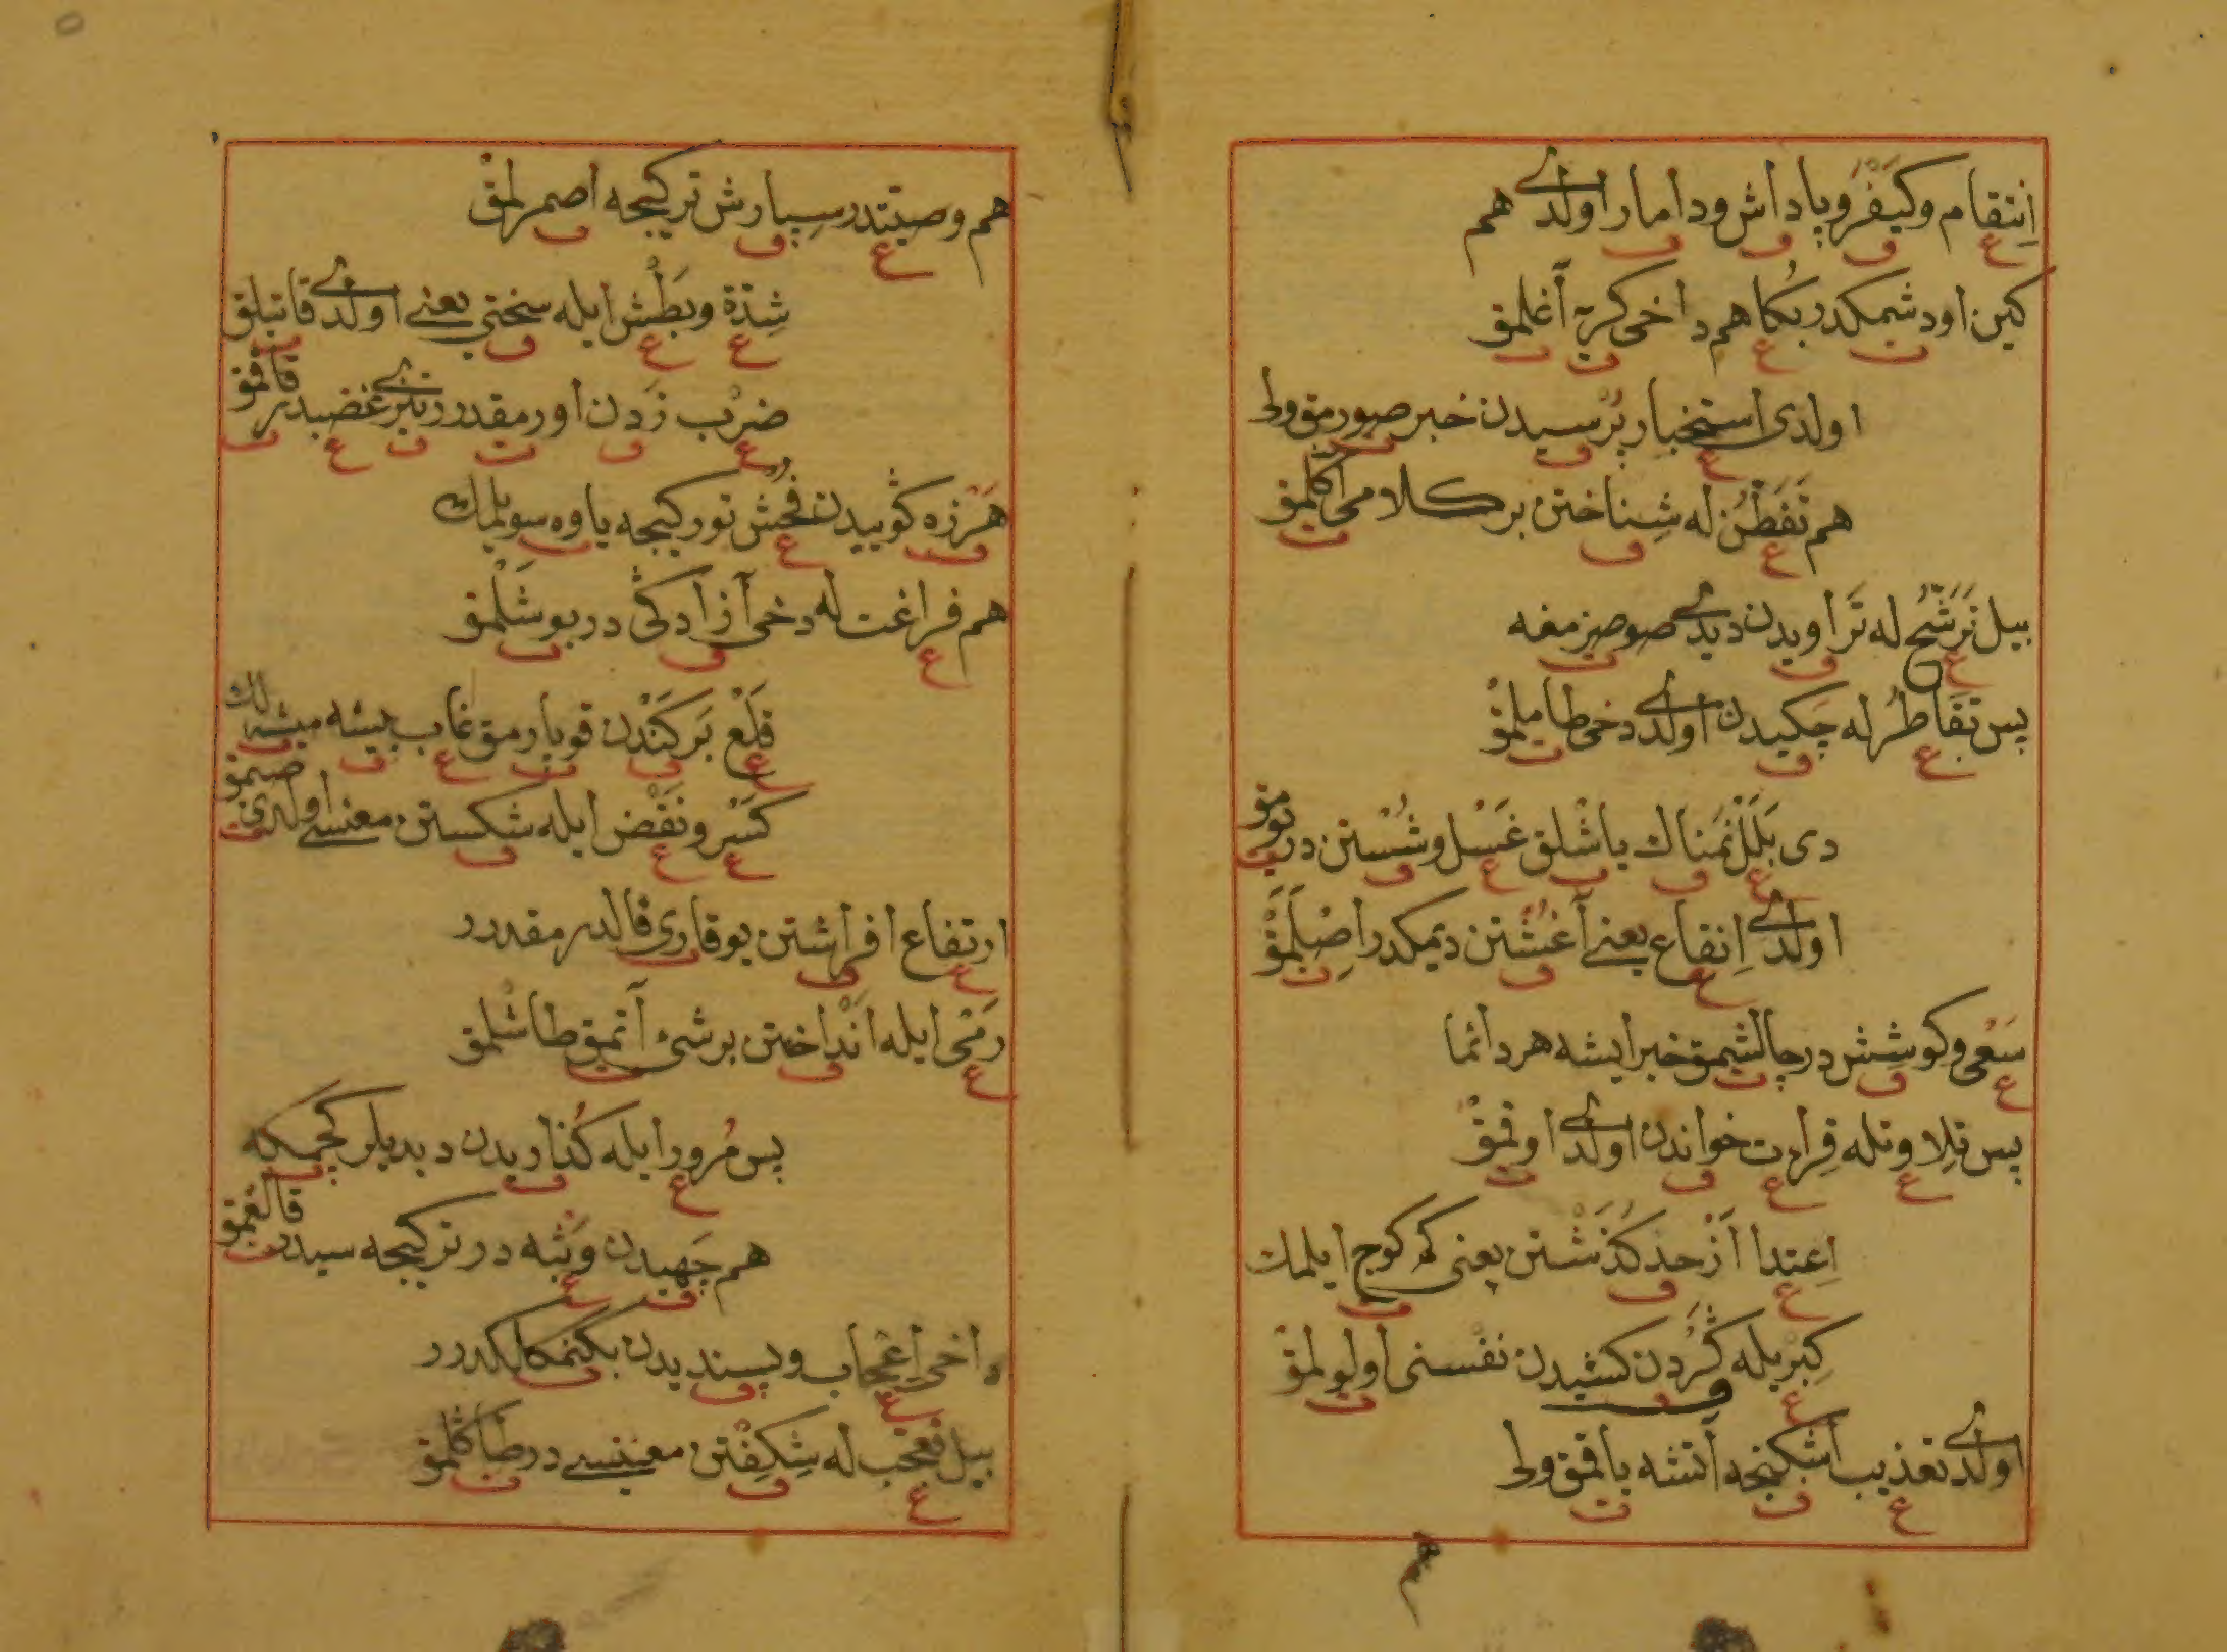 اِنتقام وكَيْفَرْ و پاداش و دامار اولدے هم
كين اودشمكدر بُكا هم داخى كريه آغلمق
اولدى استخبار پُرْسيدن خبر صورمق ولى
هم تَفَطْنْ له شِناختن بر كلامى اكلمق
بيل تَرَشُّحْ له تَراويدن ديدے صو صيزمغه
پس تَقَاطُرْ له چَكيدن اولدے دخى طاملمق
دى بَلَلْ نَمناك ياشلق غَسْل و شُسْتن در يومق
اولدے اِنقاع يعنے آغُشْتن ديمكدر اِصْلَمَقْ
سَعْى و كوشِشْ در چالشمق خير ايشه هر دائما
پس تِلاوتله قِراءت خواندن اولدے اوقمق
اِعتدا اَزْ حد كُذَشْتن يعنى كه كوج ايلمك
كِبْر يله گَرْدن كشيدن نفسنى اولولمق
اولدے تعذيب اشكنجه آتشه ياقمق ولى
هم
هم وصيتدر سپارش تركيجه اصمرلمق
شِدّة و بَطْش ايله سختى يعنے اولدے قاتيلق
ضرْب زَدن اورمقدر دخى غضبدر قاقمق
هَرْزه كوييدن فُحْش تور كيجه ياوه سويلمك
هم فراغت له دخى آزادكى در بوشَلْمق
قَلْع بَرْكَنْدن قوپارمق غاب بيشه ميشه لك
كَسْر و نَقْض ايله شكستن معنسے اولدى صيمق
ارتفاع افراشتن يوقارى قالدرمقدرر
رَمْى ايله اَنْداختن بر شئ آتمق طاشلمق
پس مُرور ايله كُذاريدن ديديلر كچمكه
هم جَهيدن وَثْبه در تركيجه سيدر قالقمق
داخى اِعْجاب و پسنديدن بكنمكلكدرر
بيل تعجب له شِكِفْتن معنيسے در طاكلمق